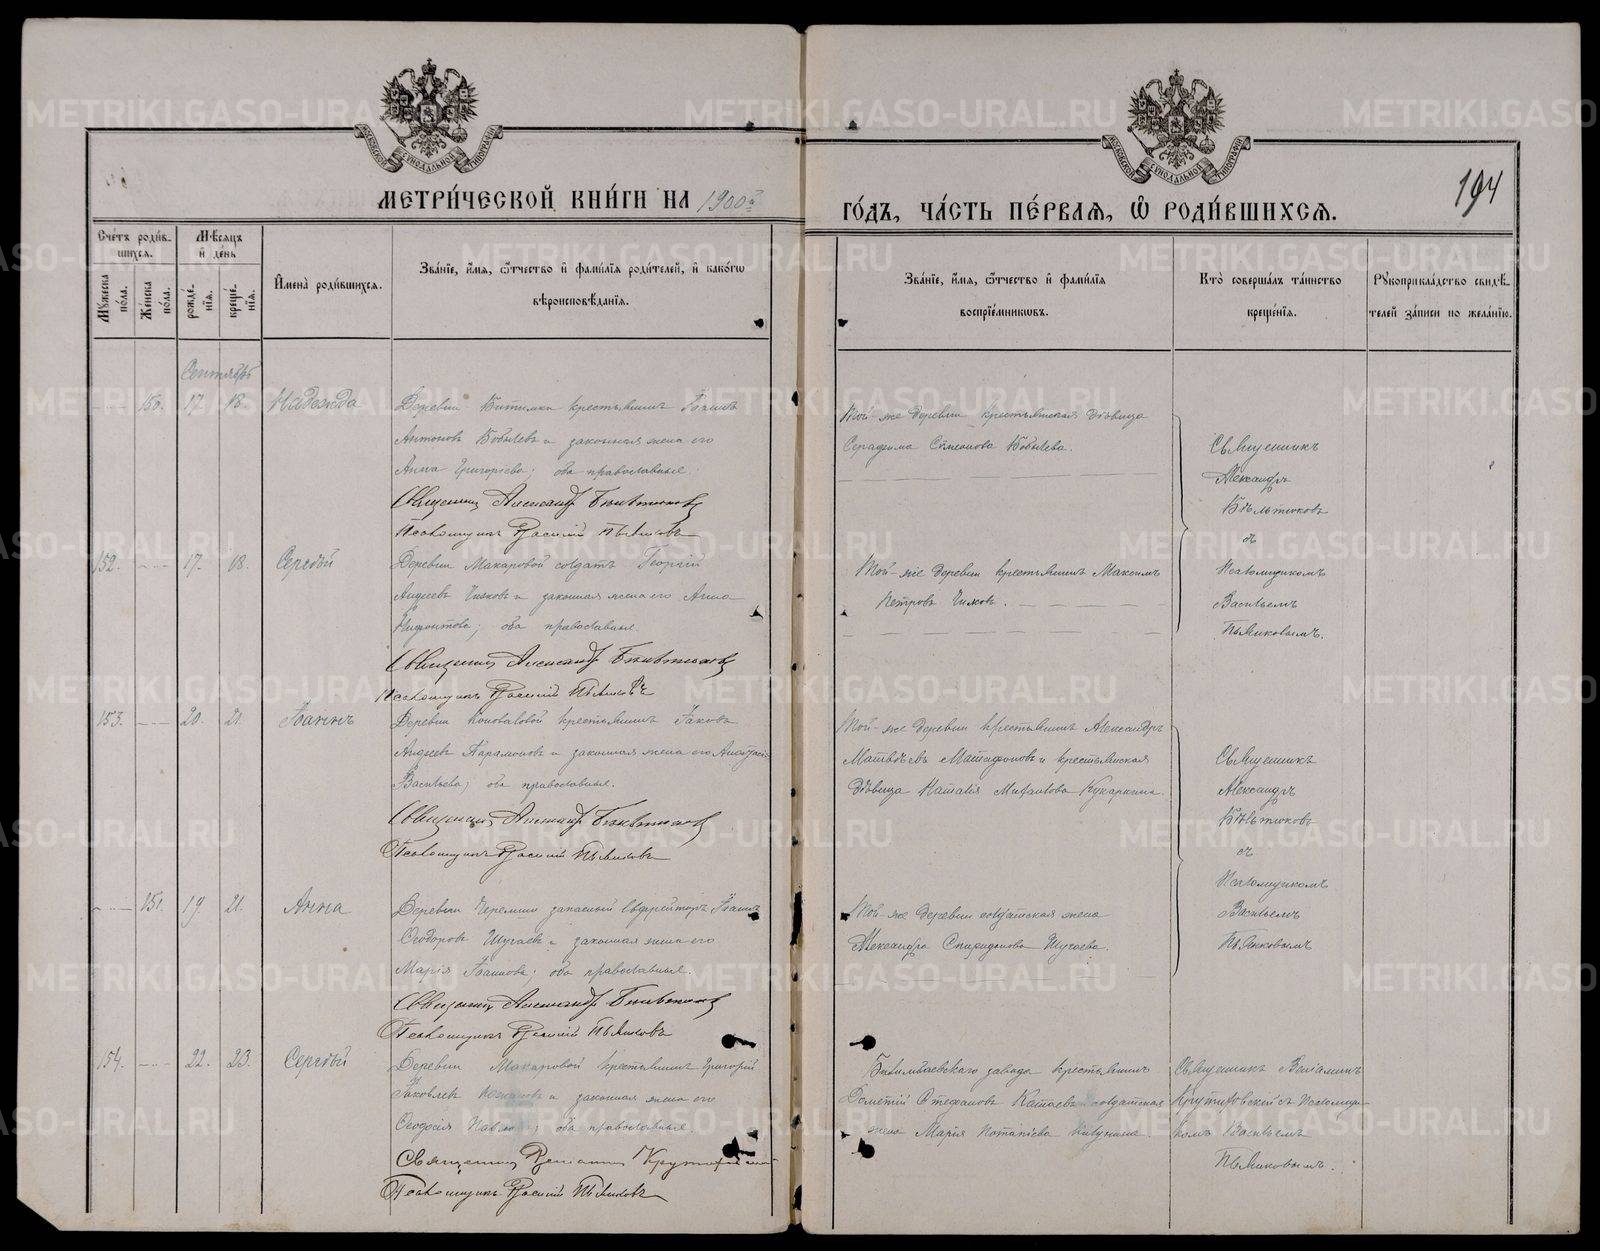 МЕТРИ́ЧЕСКОЙ КНИ́ГИ НА 1900й
ГО́ДЪ, ЧА́СТЬ ПЕ́РВАЯ, Ѡ РОДИ́ВШИХСЯ.
194
Сче́тъ роди́в-
шихся.
Му́жеска
по́ла.
Же́нска
по́ла.
Мѣ́сяцъ
и҆ де́нь
рожде́-
нїя.
креще́-
нїя.
И҆мена̀ роди́вшихся.
Зва́нїе, и҆́мя, ѻ҆́тчество и҆ фамилїя роди́телей, и҆ како́гѡ
вѣроисповѣ́данїя.
Зва́нїе, и҆́мя, ѻ҆́тчество и҆ фами́лїя
воспрїе́мникѡвъ.
Кто̀ соверша́лъ та́инство
креще́нїя.
Рꙋкоприкла́дство свидѣ́-
телей за́писи по жела́нїю.
Сентябрь
150. 17. 18. Надежда
Деревни Битимки крестьянинъ Іоаннъ
Антоновъ Бобылевъ и законная жена его
Анна Григоріева; оба православные.
Священникъ Александръ Бѣльтюковъ
Псаломщикъ Василій Пьянковъ
Той-же деревни крестьянская дѣвица
Серафима Симеонова Бобылева.
Священникъ
Александръ
Бѣльтюковъ
съ
Псаломщикомъ
Васильемъ
Пьянковымъ.
152. 17. 18. Сергѣй
Деревни Макаровой солдатъ Георгій
Андреевъ Чижовъ и законная жена его Анна
оба православные.
Священникъ Александръ Бѣльтюковъ
Псаломщикъ Василій Пьянковъ
Той-же деревни крестьянинъ Максимъ
Петровъ Чижовъ.
153. 20. 21. Іоаннъ
Деревни Коноваловой крестьянинъ Іаковъ
Андреевъ Парамоновъ и законная жена его Анастасія
Васильева; оба православные.
Священникъ Александръ Бѣльтюковъ
Псаломщикъ Василій Пьянковъ
Той-же деревни крестьянинъ Александръ
Матвѣевъ и крестьянская
дѣвица Наталія Михаилова Кукаркина.
Священникъ
Александръ
Бѣльтюковъ
съ
Псаломщикомъ
Васильемъ
Пьянковымъ
151. 19. 21. Анна
Деревни Черемши запасный Ефрейторъ Іоаннъ
Ѳеодоровъ Шугаевъ и законная жена его
Марія Іоаннова; оба православные.
Священникъ Александръ Бѣльтюковъ
Псаломщикъ Василій Пьянковъ
Той-же деревни солдатская жена
Александра Спиридонова Шугаева.
154. 22. 23. Сергѣй
Деревни Макаровой крестьянинъ Григорій
Іаковлевъ и законная жена его
Ѳеодосія оба православные.
Священникъ Веніаминъ
Псаломщикъ Василій Пьянковъ
Билимбаевскаго завода крестьянинъ
Дометій Стефановъ Катаевъ солдатская
жена Марія Потапіева
Священникъ Веніаминъ
съ Псаломщи-
комъ Васильемъ
Пьянковымъ.
METRIKI.GASO-URAL.RU